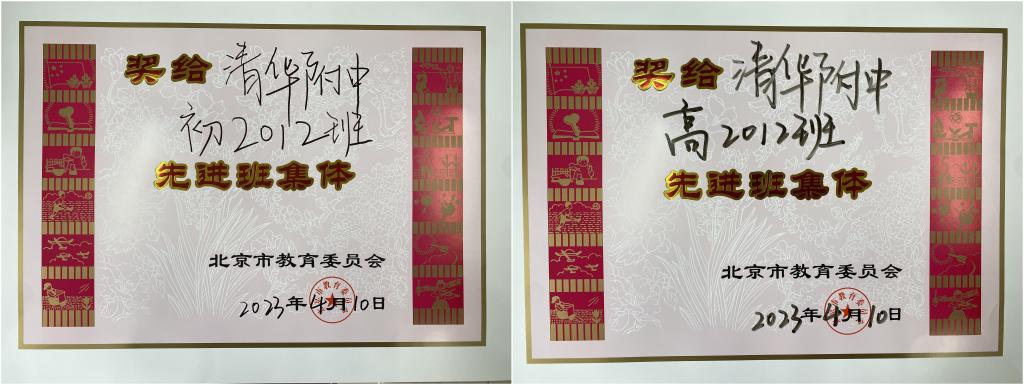 奖给 清华附中
初2012班
先进班集体
北京市教育委员会
2023年4月10日
奖给 清华附中
高2012班
先进班集体
北京市教育委员会
2023年4月10日